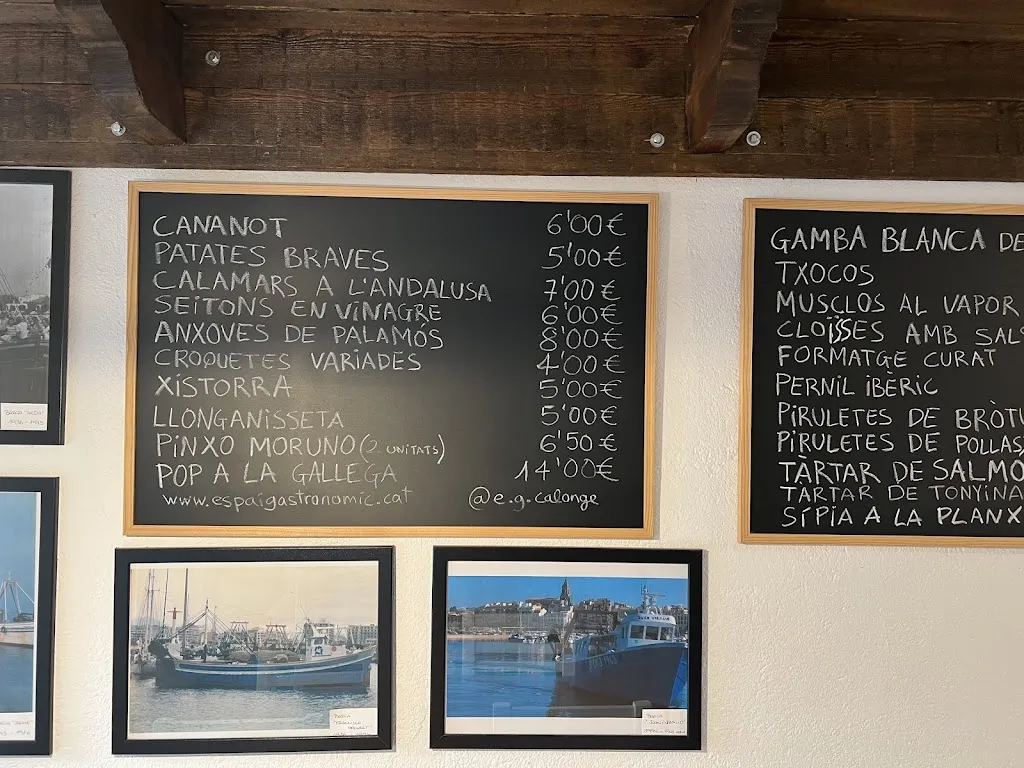 CANANOT 6'00€
PATATES BRAVES 5'00€
CALAMARS A L'ANDALUSA 7'00€
SEITONS EN VINAGRE 6'00€
ANXOVES DE PALAMÓS 8'00€
CROQUETES VARIADES 4'00€
XISTORRA 5'00€
LLONGANISSETA 5'00€
PINXO MORUNO (2 UNITATS) 6'50€
POP A LA GALLEGA 14'00€
www.espaigastronomic.cat @e.g.calonge
GAMBA BLANCA DE
TXOCOS
MUSCLOS AL VAPOR
CLOÏSSES AMB SAL
FORMATGE CURAT
PERNIL IBÈRIC
PIRULETES DE BRÒTU
PIRULETES DE POLLAS
TÀRTAR DE SALMO
TARTAR DE TONYINA
SÍPIA A LA PLANX